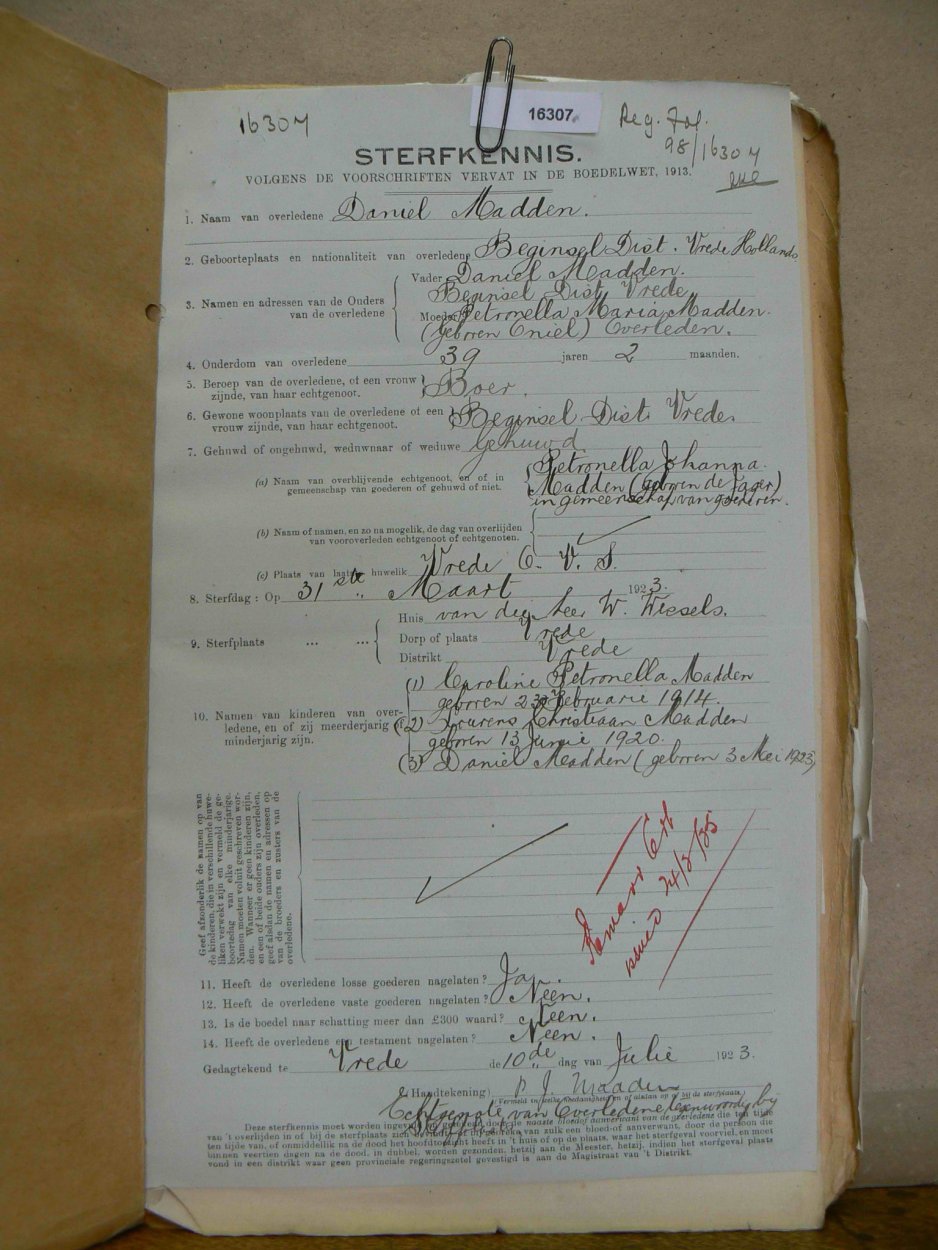 16307
16307
Reg. Fol.
98/16307
STERFKENNIS.
VOLGENS DE VOORSCHRIFTEN VERVAT IN DE BOEDELWET, 1913.
1. Naam van overledene Daniel Madden.
2. Geboorteplaats en nationaliteit van overledene Beginsel Dist. Vrede Hollands
3. Namen en adressen van de Ouders van de overledene
Vader Daniel Madden.
Beginsel Dist Vrede
Moeder Petronella Maria Madden.
(geboren Oniel) Overleden.
4. Ouderdom van overledene 39 jaren 2 maanden.
5. Beroep van de overledene, of een vrouw
zijnde, van haar echtgenoot. Boer.
6. Gewone woonplaats van de overledene of een
vrouw zijnde, van haar echtgenoot. Beginsel Dist. Vrede.
7. Gehuwd of ongehuwd, weduwnaar of weduwe Gehuwd
(a) Naam van overblijvende echtgenoot, en of in
gemeenschap van goederen of gehuwd of niet.
Petronella Johanna
Madden (geboren de Jager)
in gemeenschap van goederen.
(b) Naam of namen, en zo na mogelik, de dag van overlijden
van vooroverleden echtgenoot of echtgenoten.
(c) Plaats van laatste huwelik Vrede O. V. S.
8. Sterfdag: Op 31ste Maart 1923.
9. Sterfplaats ... ...
Huis van den heer W. Wessels.
Dorp of plaats Vrede
Distrikt Vrede
10. Namen van kinderen van over-
ledene, en of zij meerderjarig of
minderjarig zijn.
(1) Caroline Petronella Madden
geboren 23 Februarie 1914.
(2) Lourens Christiaan Madden
geboren 13 Junie 1920.
(3) Daniel Madden (geboren 3 Mei 1923)
Geef afzonderlik de namen op van
de kinderen, die in verschillende huwe-
liken verwekt zijn en vermeld de ge-
boortedag van elke minderjarige.
Namen moeten voluit geschreven wor-
den. Wanneer er geen kinderen zijn,
en een of beide ouders zijn overleden,
geef alsdan de namen en adressen op
van de broeders en zusters van de
overledene.
24/8/55
11. Heeft de overledene losse goederen nagelaten? Ja.
12. Heeft de overledene vaste goederen nagelaten? Neen.
13. Is de boedel naar schatting meer dan £300 waard? Neen.
14. Heeft de overledene een testament nagelaten? Neen.
Gedagtekend te Vrede de 10de dag van Julie 1923.
(Handtekening) P J Madden
Echtgenote van Overledene tegenwoordig bij
Deze sterfkennis moet worden ingevuld
van 't overlijden in of bij de sterfplaats
ten tijde van, of onmiddellik na de dood het hoofdtoezicht heeft in 't huis of op de plaats, waar het sterfgeval voorviel, en moet
binnen veertien dagen na de dood, in dubbel, worden gezonden, hetzij aan de Meester, hetzij, indien het sterfgeval plaats
vond in een distrikt waar geen provinciale regeringszetel gevestigd is aan de Magistraat van 't Distrikt.